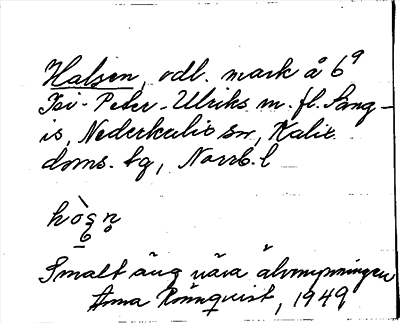 Halsen, odl. mark å 6⁹
Isi-Peter-Ulriks m. fl. Sang-
is, Nederkalix sn, Kalix
doms. tg, Norrb. l
Smalt äng nära älvmynningen
Anna Rönnquist, 1949